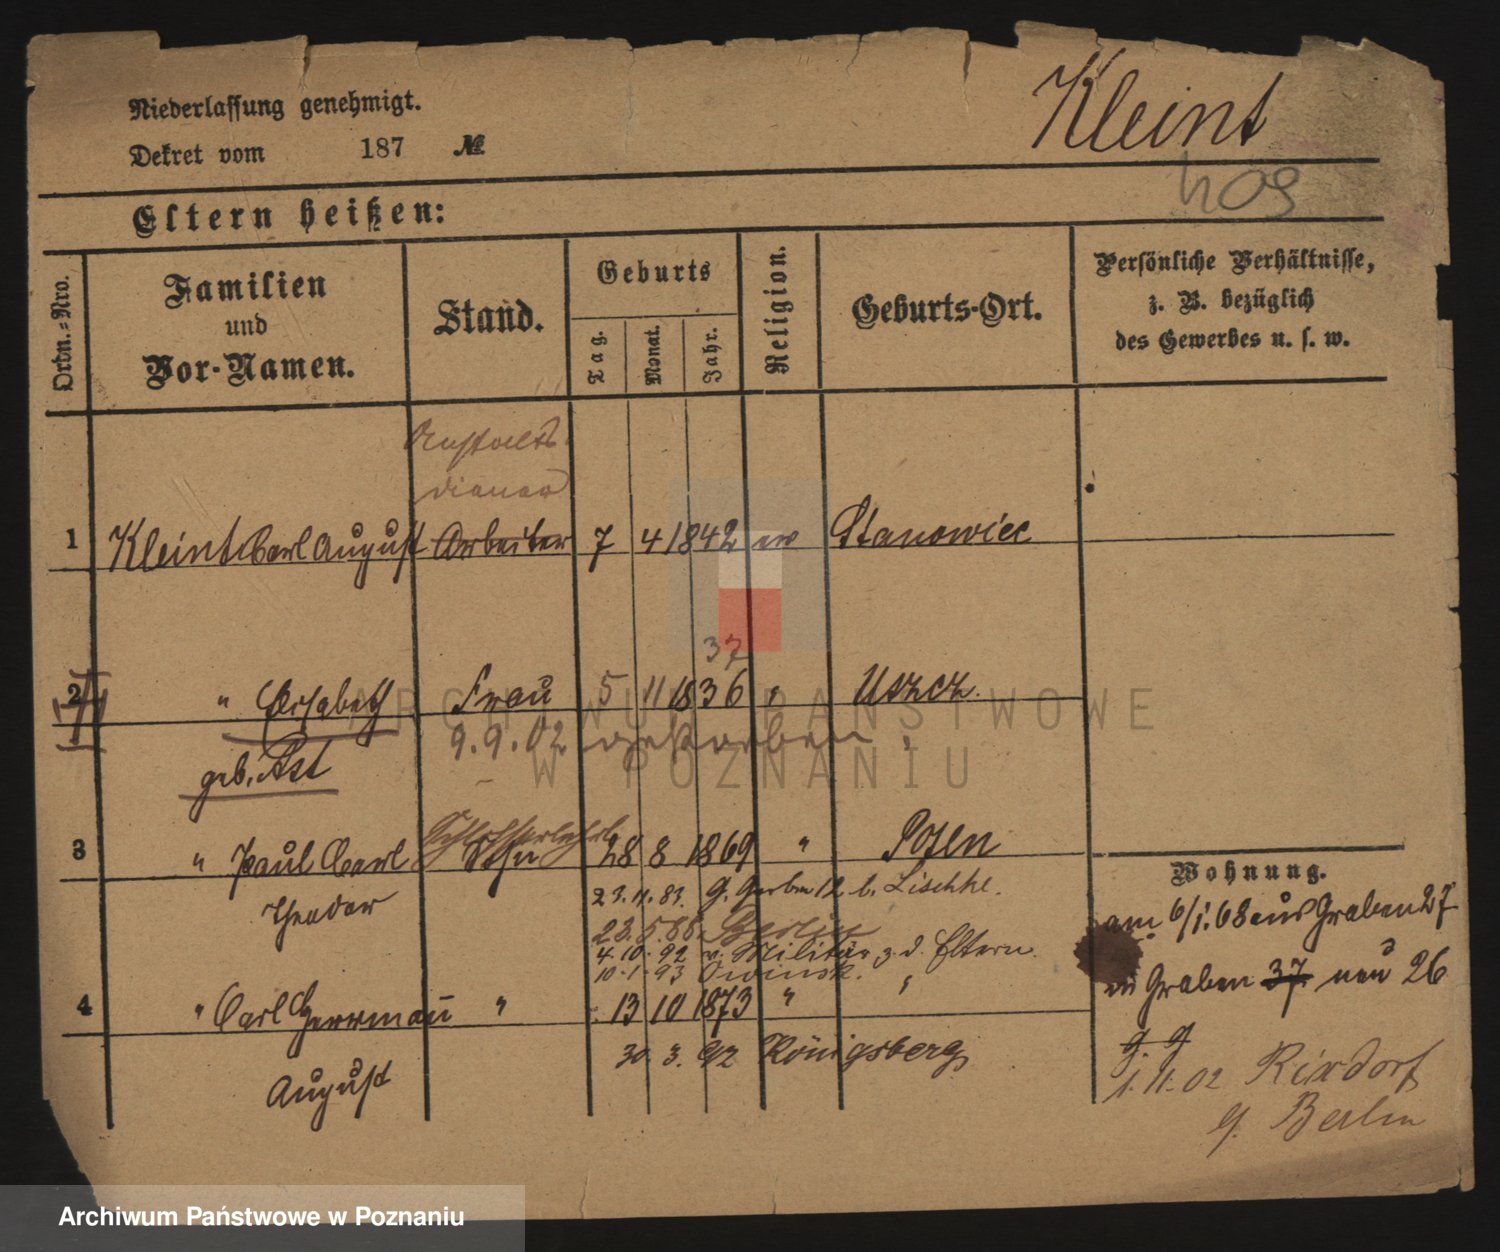 Niederlassung genehmigt.
Dekret vom 187 №
Kleint
409
Eltern heißen:
Ordn.-Nro.
Familien
und
Vor-Namen.
Stand.
Geburts
Tag.
Monat.
Jahr.
Religion.
Geburts-Ort.
Persönliche Verhältnisse,
z. B. bezüglich
des Gewerbes u. s. w.
Anstalts
diener
1 Kleint Carl August Arbeiter 7 4 1842 ev Stanowiec
37
2 " Elisabeth Frau 5 11 1836 " Uszcz.
9.9.02 gestorben
geb. Ast
Schlosserlehrl
3 " Paul Carl Sohn 28 8 1869 " Posen
Theodor
23.11.83. G. Gerber 12 b. Lischke.
23.5.86 Berlin
4.10.92 v. Militär z. d. Eltern.
10.1.93 Owinsk.
4 " Carl Herrmann " 13 10 1873 " "
August
30.3.92 Königsberg
Wohnung.
am 6/1.68 aus Graben 27
in Graben 37 neu 26
g. g
1.11.02 Rixdorf
g. Berlin
ARCHIWUM PAŃSTWOWE
W POZNANIU
Archiwum Państwowe w Poznaniu